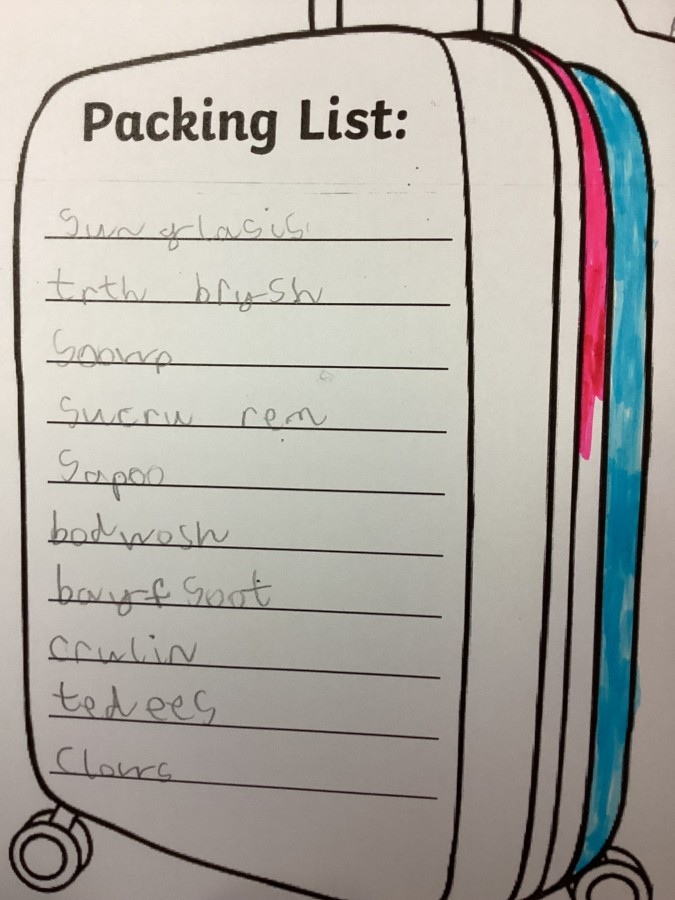 Packing List:
Sunglasis
trth brysh
Soowp
Sucru rem
Sapoo
bodwosh
bayf Soot
crulin
tedees
Clows